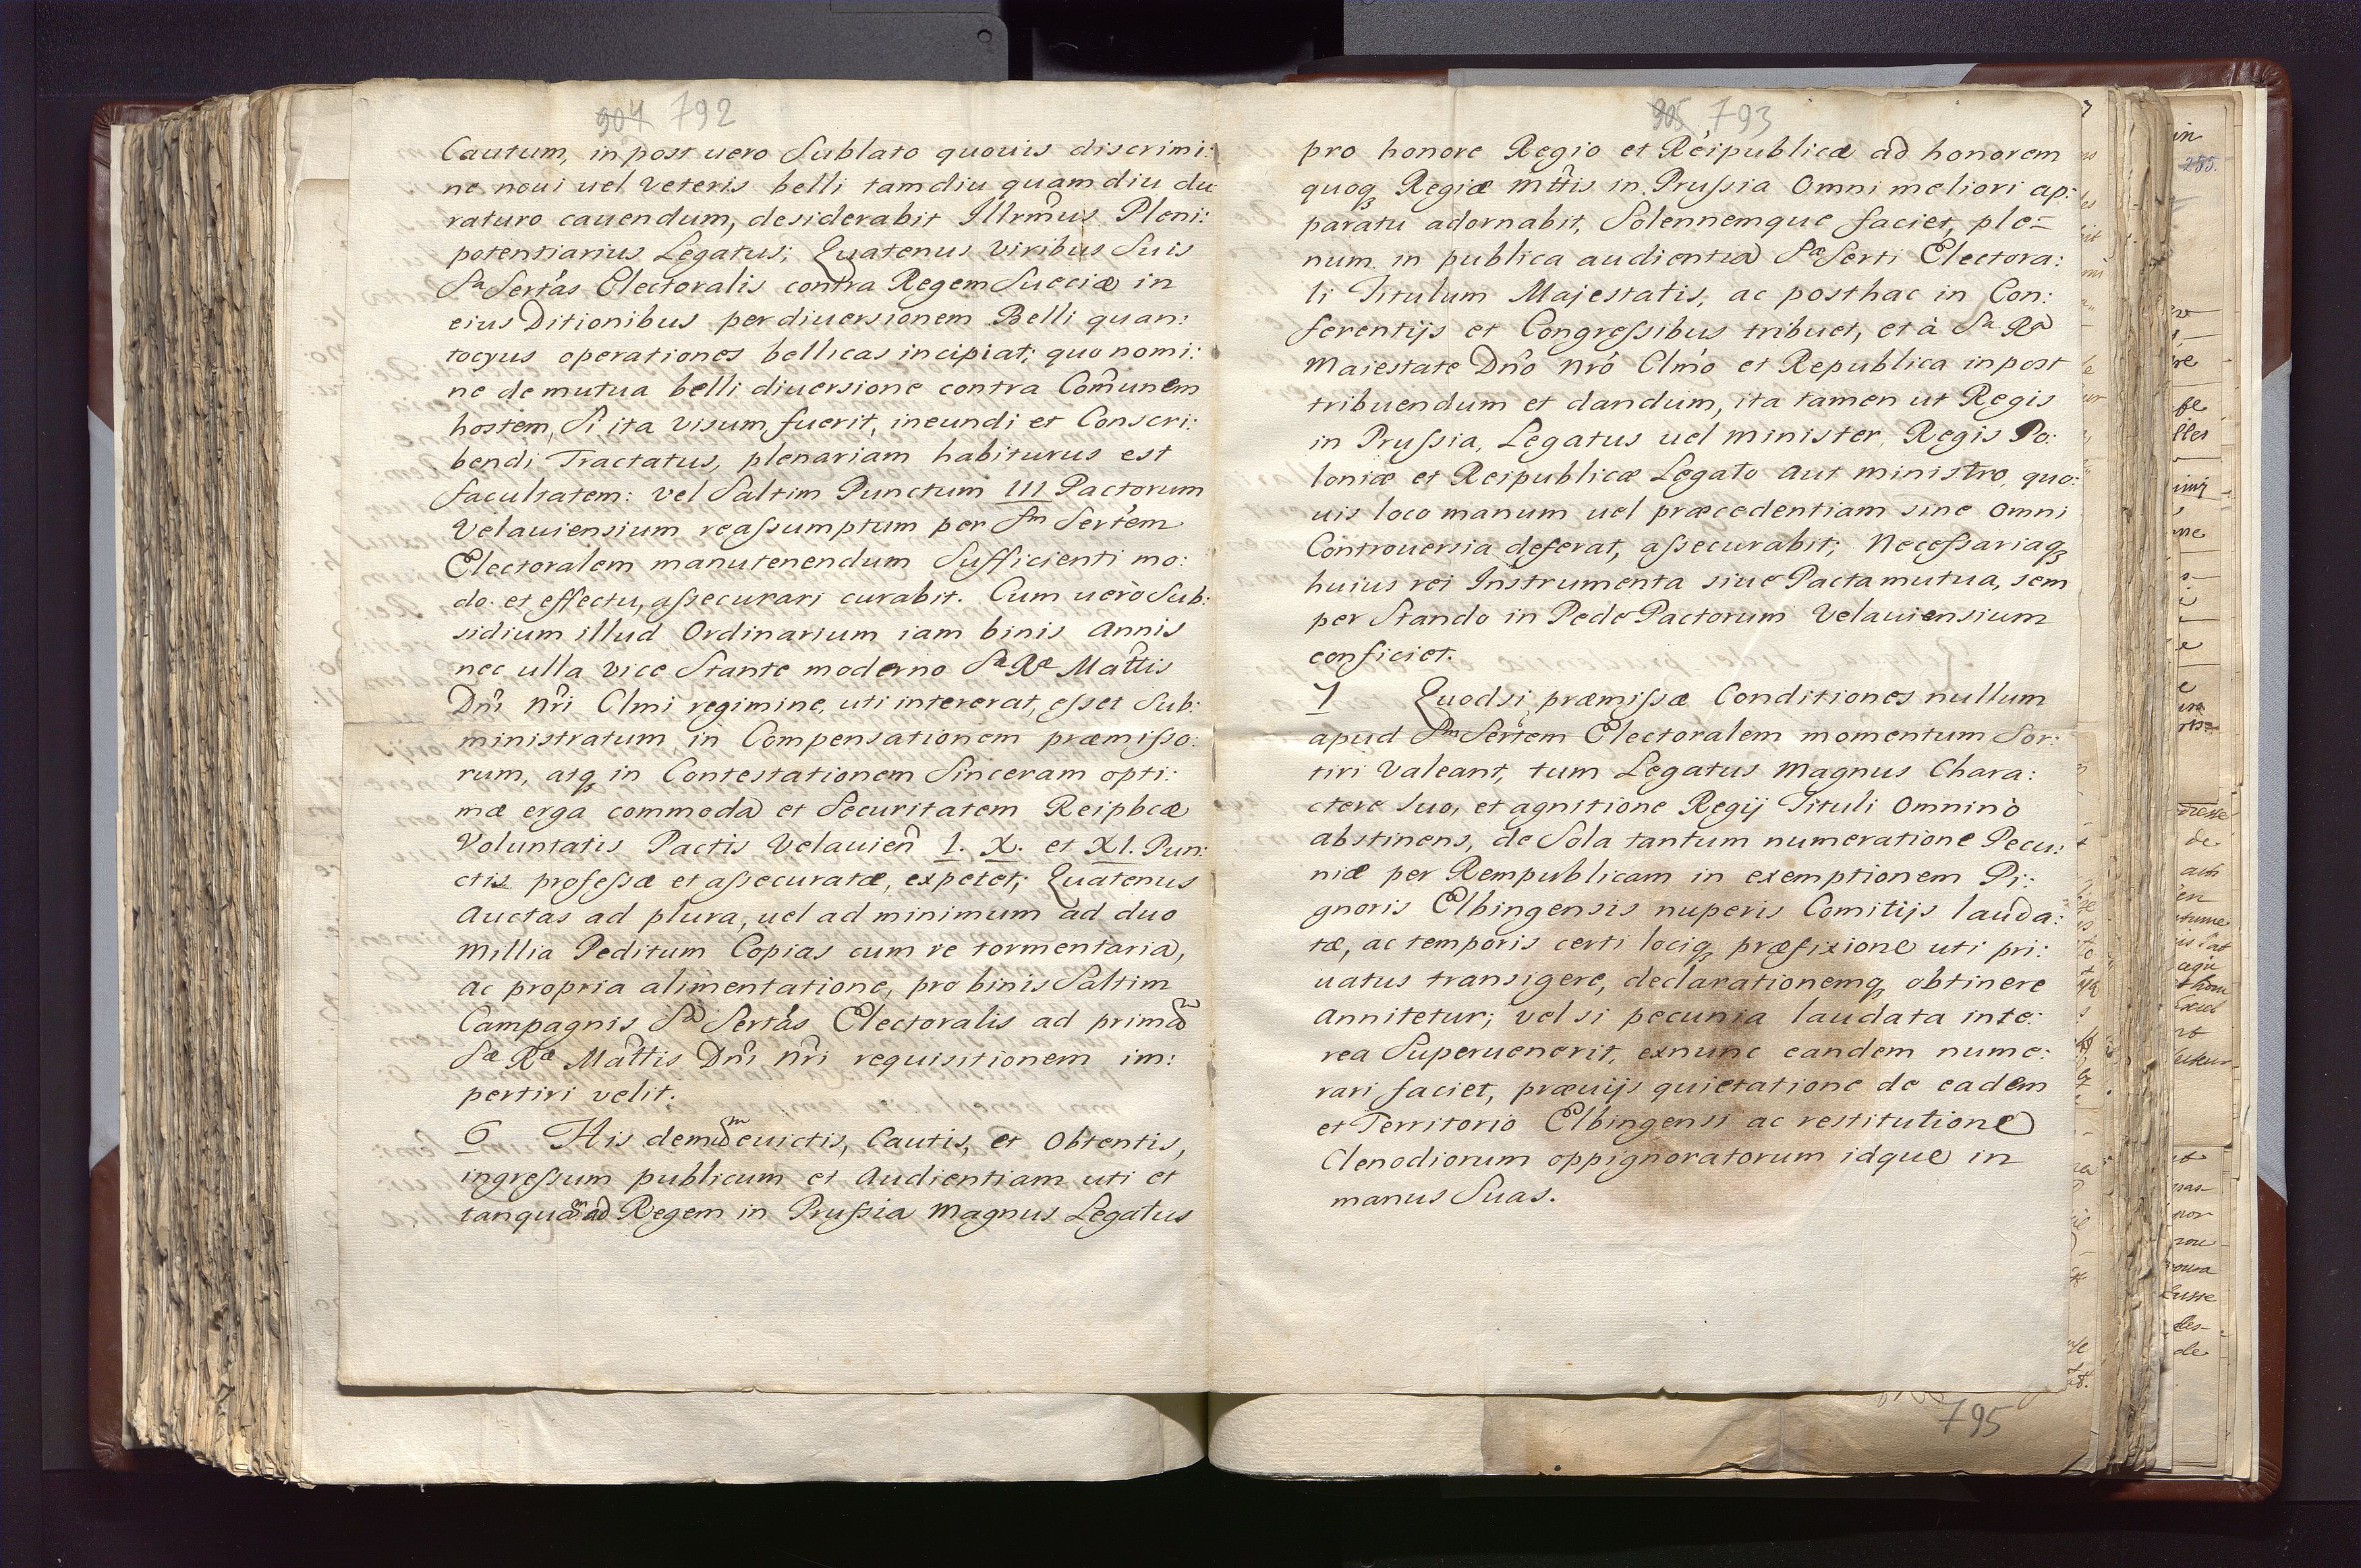 904 792
Cautum, in post uero Sublato quouis discrimi:
ne noui uel Veteris belli tamdiu quamdiu du
raturo cauendum, desiderabit Illrm̃us Pleni:
potentiarius Legatus; Quatenus viribus Suis
Sa Sertas Electoralis contra Regem Sueciæ in
eius Ditionibus per diuersionem Belli quan:
tocyus operationes bellicas incipiat; quo nomi:
ne de mutua belli diuersione contra Com̃unem
hostem, Si ita visum fuerit, ineundi et Conscri:
bendi Tractatus, plenariam habiturus est
facultatem: vel Saltim Punctum III Pactorum
Velauiensium reassumptum per Sm Sertem
Electoralem manutenendum Sufficienti mo:
do et effectu, assecurari curabit. Cum uerò Sub:
sidium illud Ordinarium iam binis Annis
nec ulla vice Stante moderno Sæ Ræ Mattis
Dn̂i Nr̂i Clmi regimine, uti intererat, esset Sub:
ministratum in Compensationem præmisso:
rum, atq; in Contestationem Sinceram opti:
mæ erga commoda et Securitatem Reipbcæ
Voluntatis Pactis Velauien̂ I. X. et XI. Pun:
ctis professæ et assecuratæ, expetet; Quatenus
Auctas ad plura, uel ad minimum ad duo
Millia Peditum Copias cum re tormentaria,
Ac propria alimentatione, pro binis Saltim
Campagnis Sa Sertas Electoralis ad primam
Sæ Ræ Mattis Dn̂i Nr̂i requisitionem im:
pertiri velit.
6 His demum euictis, Cautis, et Obtentis,
ingressum publicum et Audientiam uti et
tanquam ad Regem in Prussia Magnus Legatus
905 793
pro honore Regio et Reipublicæ ad honorem
quoq; Regiæ Mttis in Prussia Omni meliori ap:
paratu adornabit, Solennemque faciet, ple=
num in publica audientia Sæ Serti Electora:
li Titulum Majestatis, ac posthac in Con:
ferentijs et Congressibus tribuet, et à Sa Ra
Maiestate Dn̂o Nr̂o Clm̃o et Republica in post
tribuendum et dandum, ita tamen ut Regis
in Prussia, Legatus uel Minister, Regis Po:
loniæ et Reipublicæ Legato Aut Ministro, quo:
uis loco manum uel præcedentiam sine Omni
Controuersia deferat, assecurabit; Necessariaq;
huius rei Instrumenta siue Pacta mutua, sem
per Stando in Pede Pactorum Velauiensium
conficiet.
7 Quodsi præmissæ Conditiones nullum
apud Sm Sertem Electoralem momentum Sor:
tiri Valeant, tum Legatus Magnus Chara:
ctere Suo, et agnitione Regij Tituli Omninò
Abstinens, de Sola tantum numeratione Pecu:
niæ per Rempublicam in exemptionem Pi:
gnoris Elbingensis nuperis Comitijs lauda:
tæ, ac temporis certi lociq; præfixione uti pri:
uatus transigere, declarationemq; obtinere
Annitetur; vel si pecunia laudata inte:
rea Superuenerit, exnunc eandem nume:
rari faciet, præuijs quietatione de eadem
et Territorio Elbingensi ac restitutione
Clenodiorum oppignoratorum idque in
manus Suas.
795